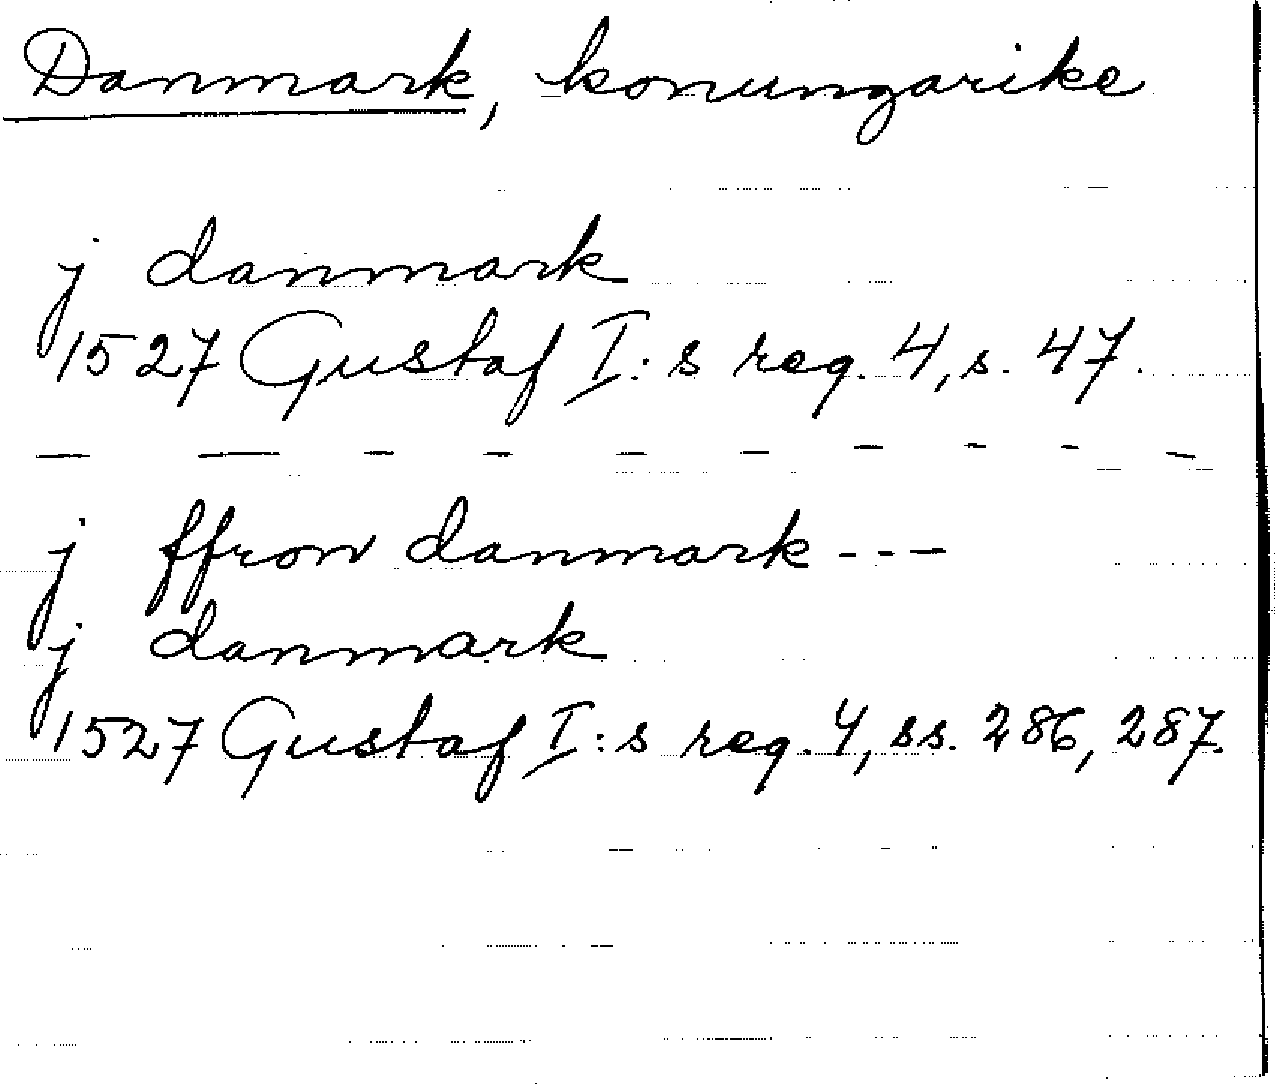 Danmark, konungarike
j danmark
1527 Gustaf I:s reg. 4, s. 47.
j ffron danmark ---
j danmark
1527 Gustaf I:s reg. 4, ss. 286, 287.